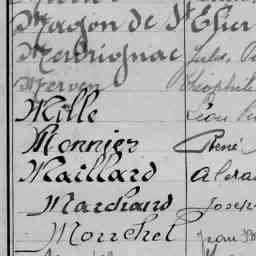 Magon de St Thier
Meurignac Jules
Merven Théophile
Mille Léon
Monnier René
Maillard Alexa
Marchand Joseph
Mouchet Jean